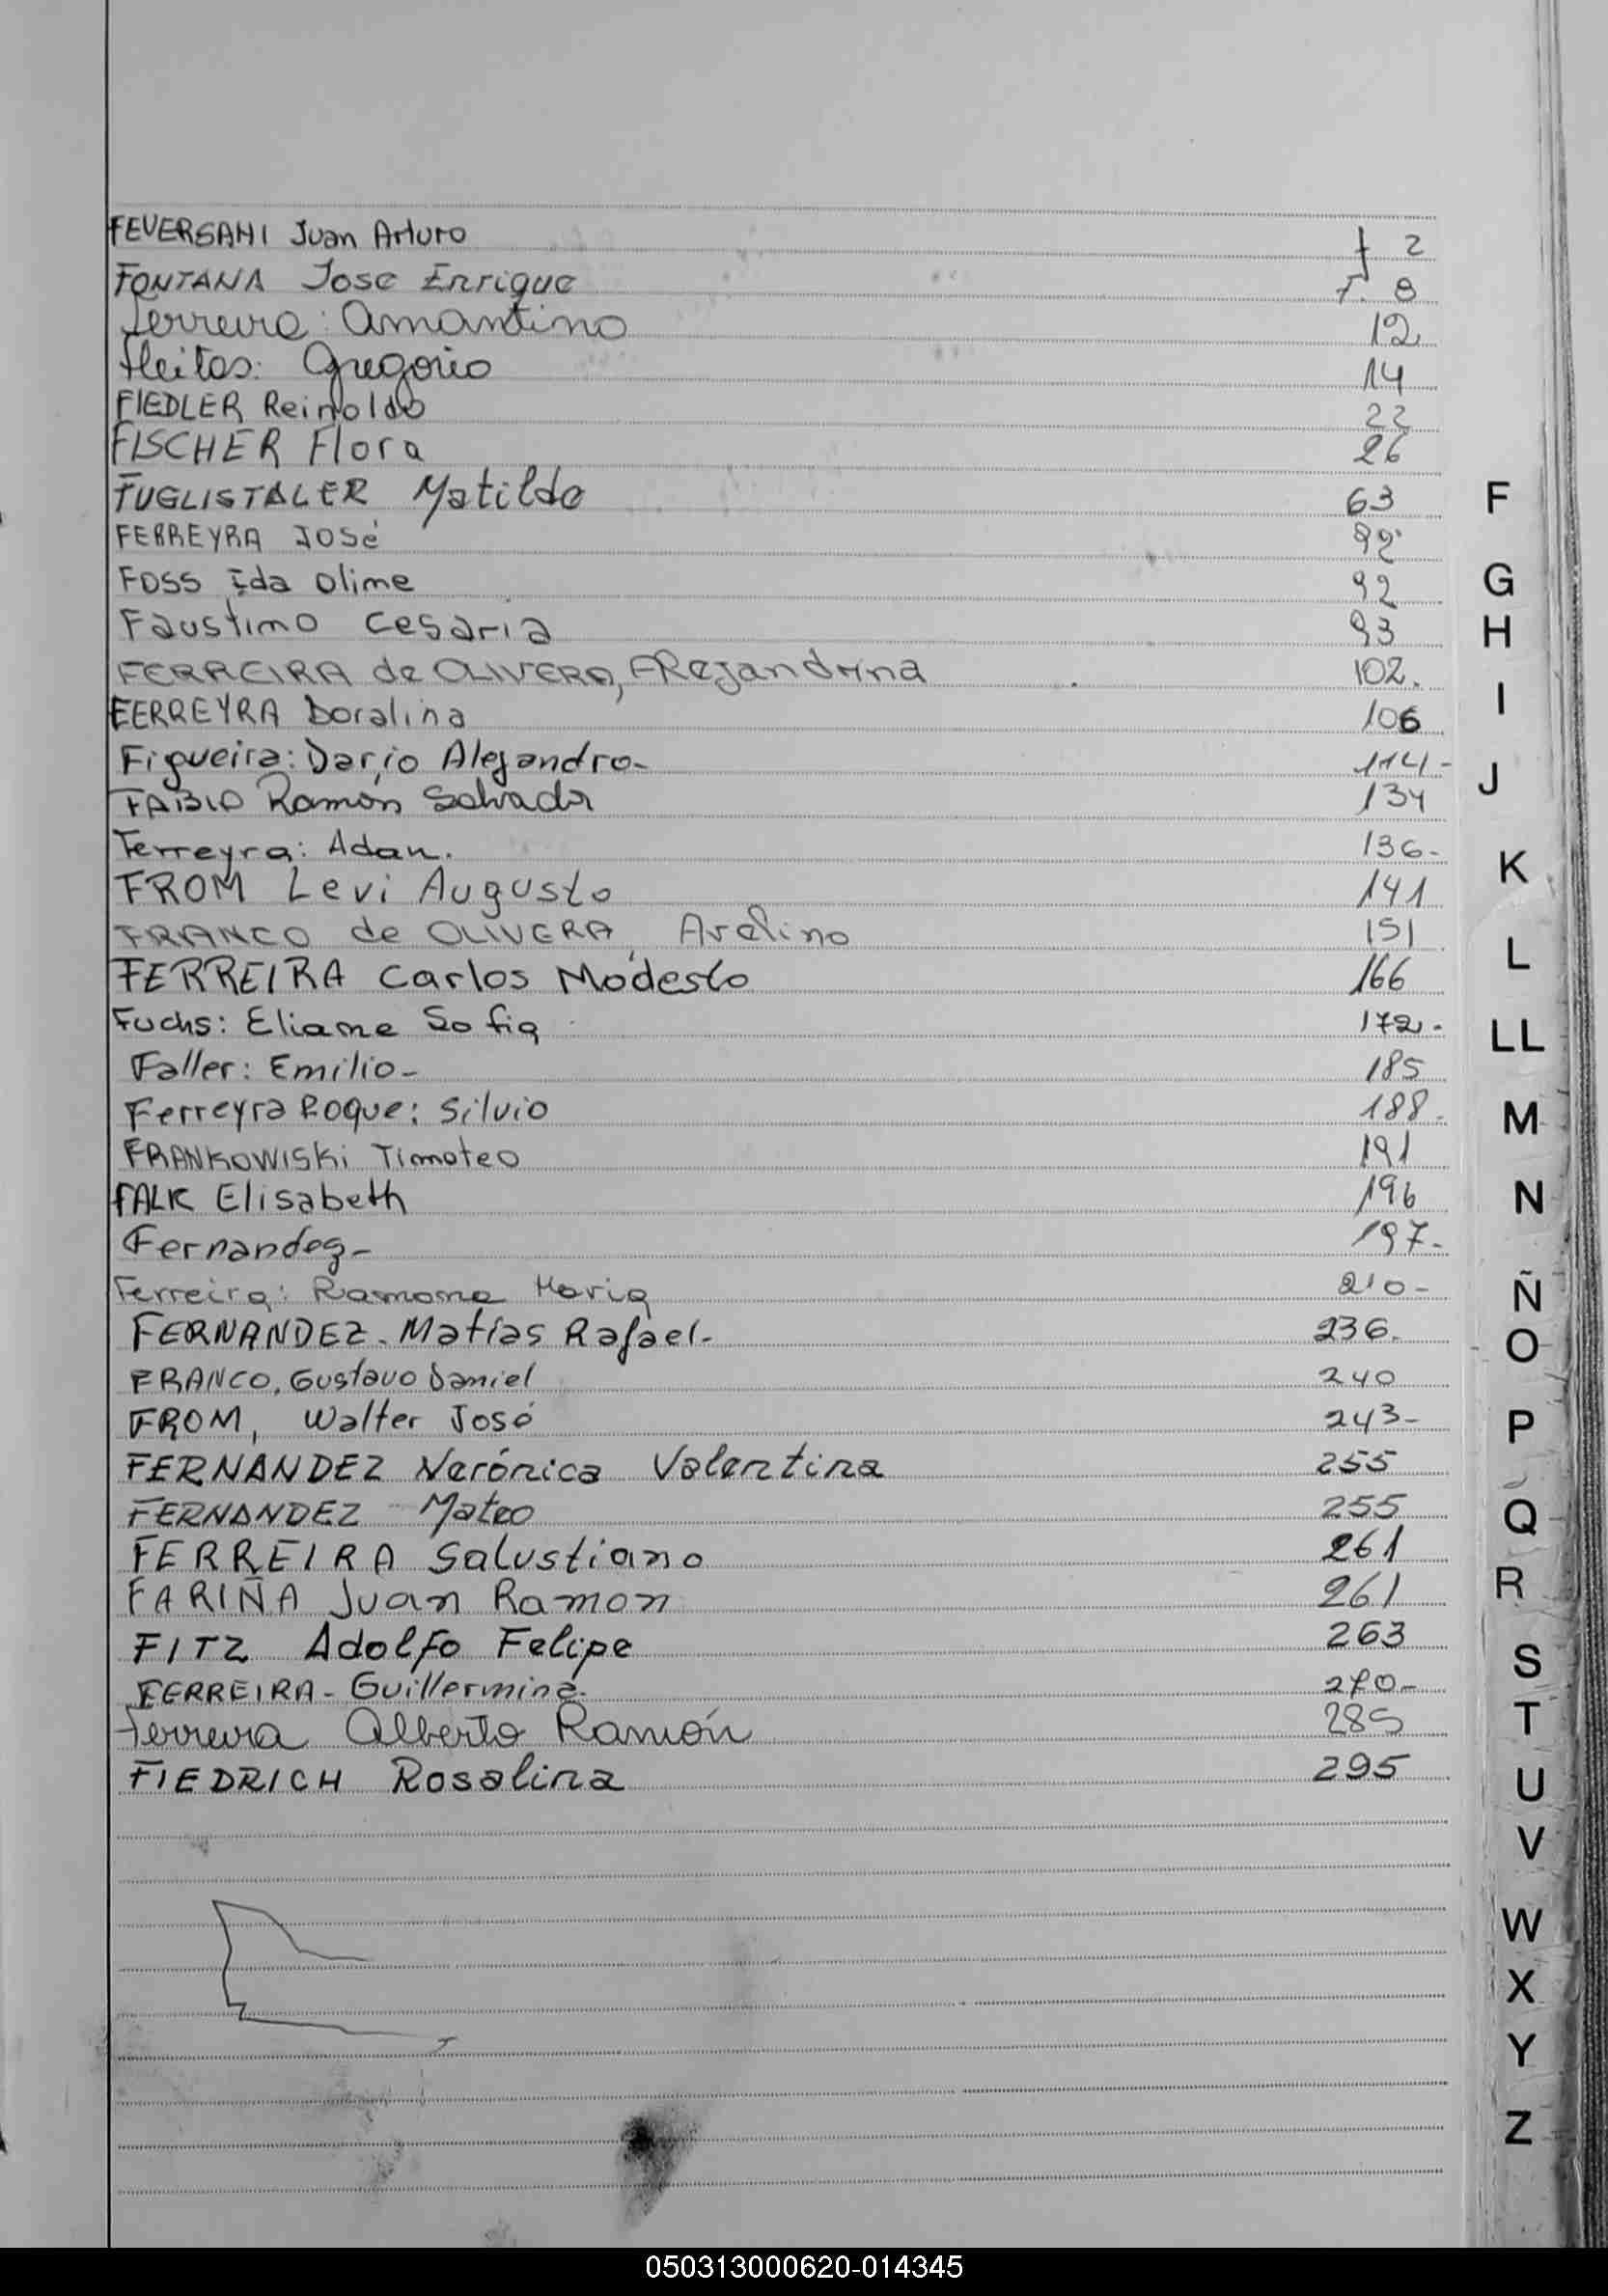 FEVERSAHI Juan Arturo f 2
FONTANA Jose Enrique F. 8
Ferreira: Amantino 12
Fleitas: Gregorio 14
FIEDLER Reinoldo 22
FISCHER Flora 26
FUGLISTALER Matilde 63 F
FERREYRA José 92
FOSS Ida Olime 92 G
Faustimo Cesaria 93 H
FERREIRA de OLIVERA, Alejandrina 102.
FERREYRA Doralina 106 I
Figueira: Dario Alejandro- 114-
FABIO Ramón Salvador 134 J
Ferreyra: Adan. 136-
FROM Levi Augusto 141 K
FRANCO de OLIVERA, Avelino 151
FERREIRA Carlos Modesto 166 L
Fuchs: Eliane Sofia 172. LL
Faller: Emilio- 185
Ferreyra Roque: Silvio 188. M
FRANKOWISKi Timoteo 191
FALK Elisabeth 196 N
Fernandez- 197-
Ferreira: Ramona Maria 210- Ñ
FERNANDEZ- Matías Rafael- 236. O
FRANCO, Gustavo Daniel 240
FROM, Walter José 243- P
FERNANDEZ Verónica Valentina 255
FERNANDEZ Mateo 255 Q
FERREIRA Salustiano 261
FARIÑA Juan Ramon 261 R
FITZ Adolfo Felipe 263 S
FERREIRA- Guillermina- 270-
Ferreira Alberto Ramón 285 T
FIEDRICH Rosalina 295 U
V
W
X
Y
Z
050313000620-014345